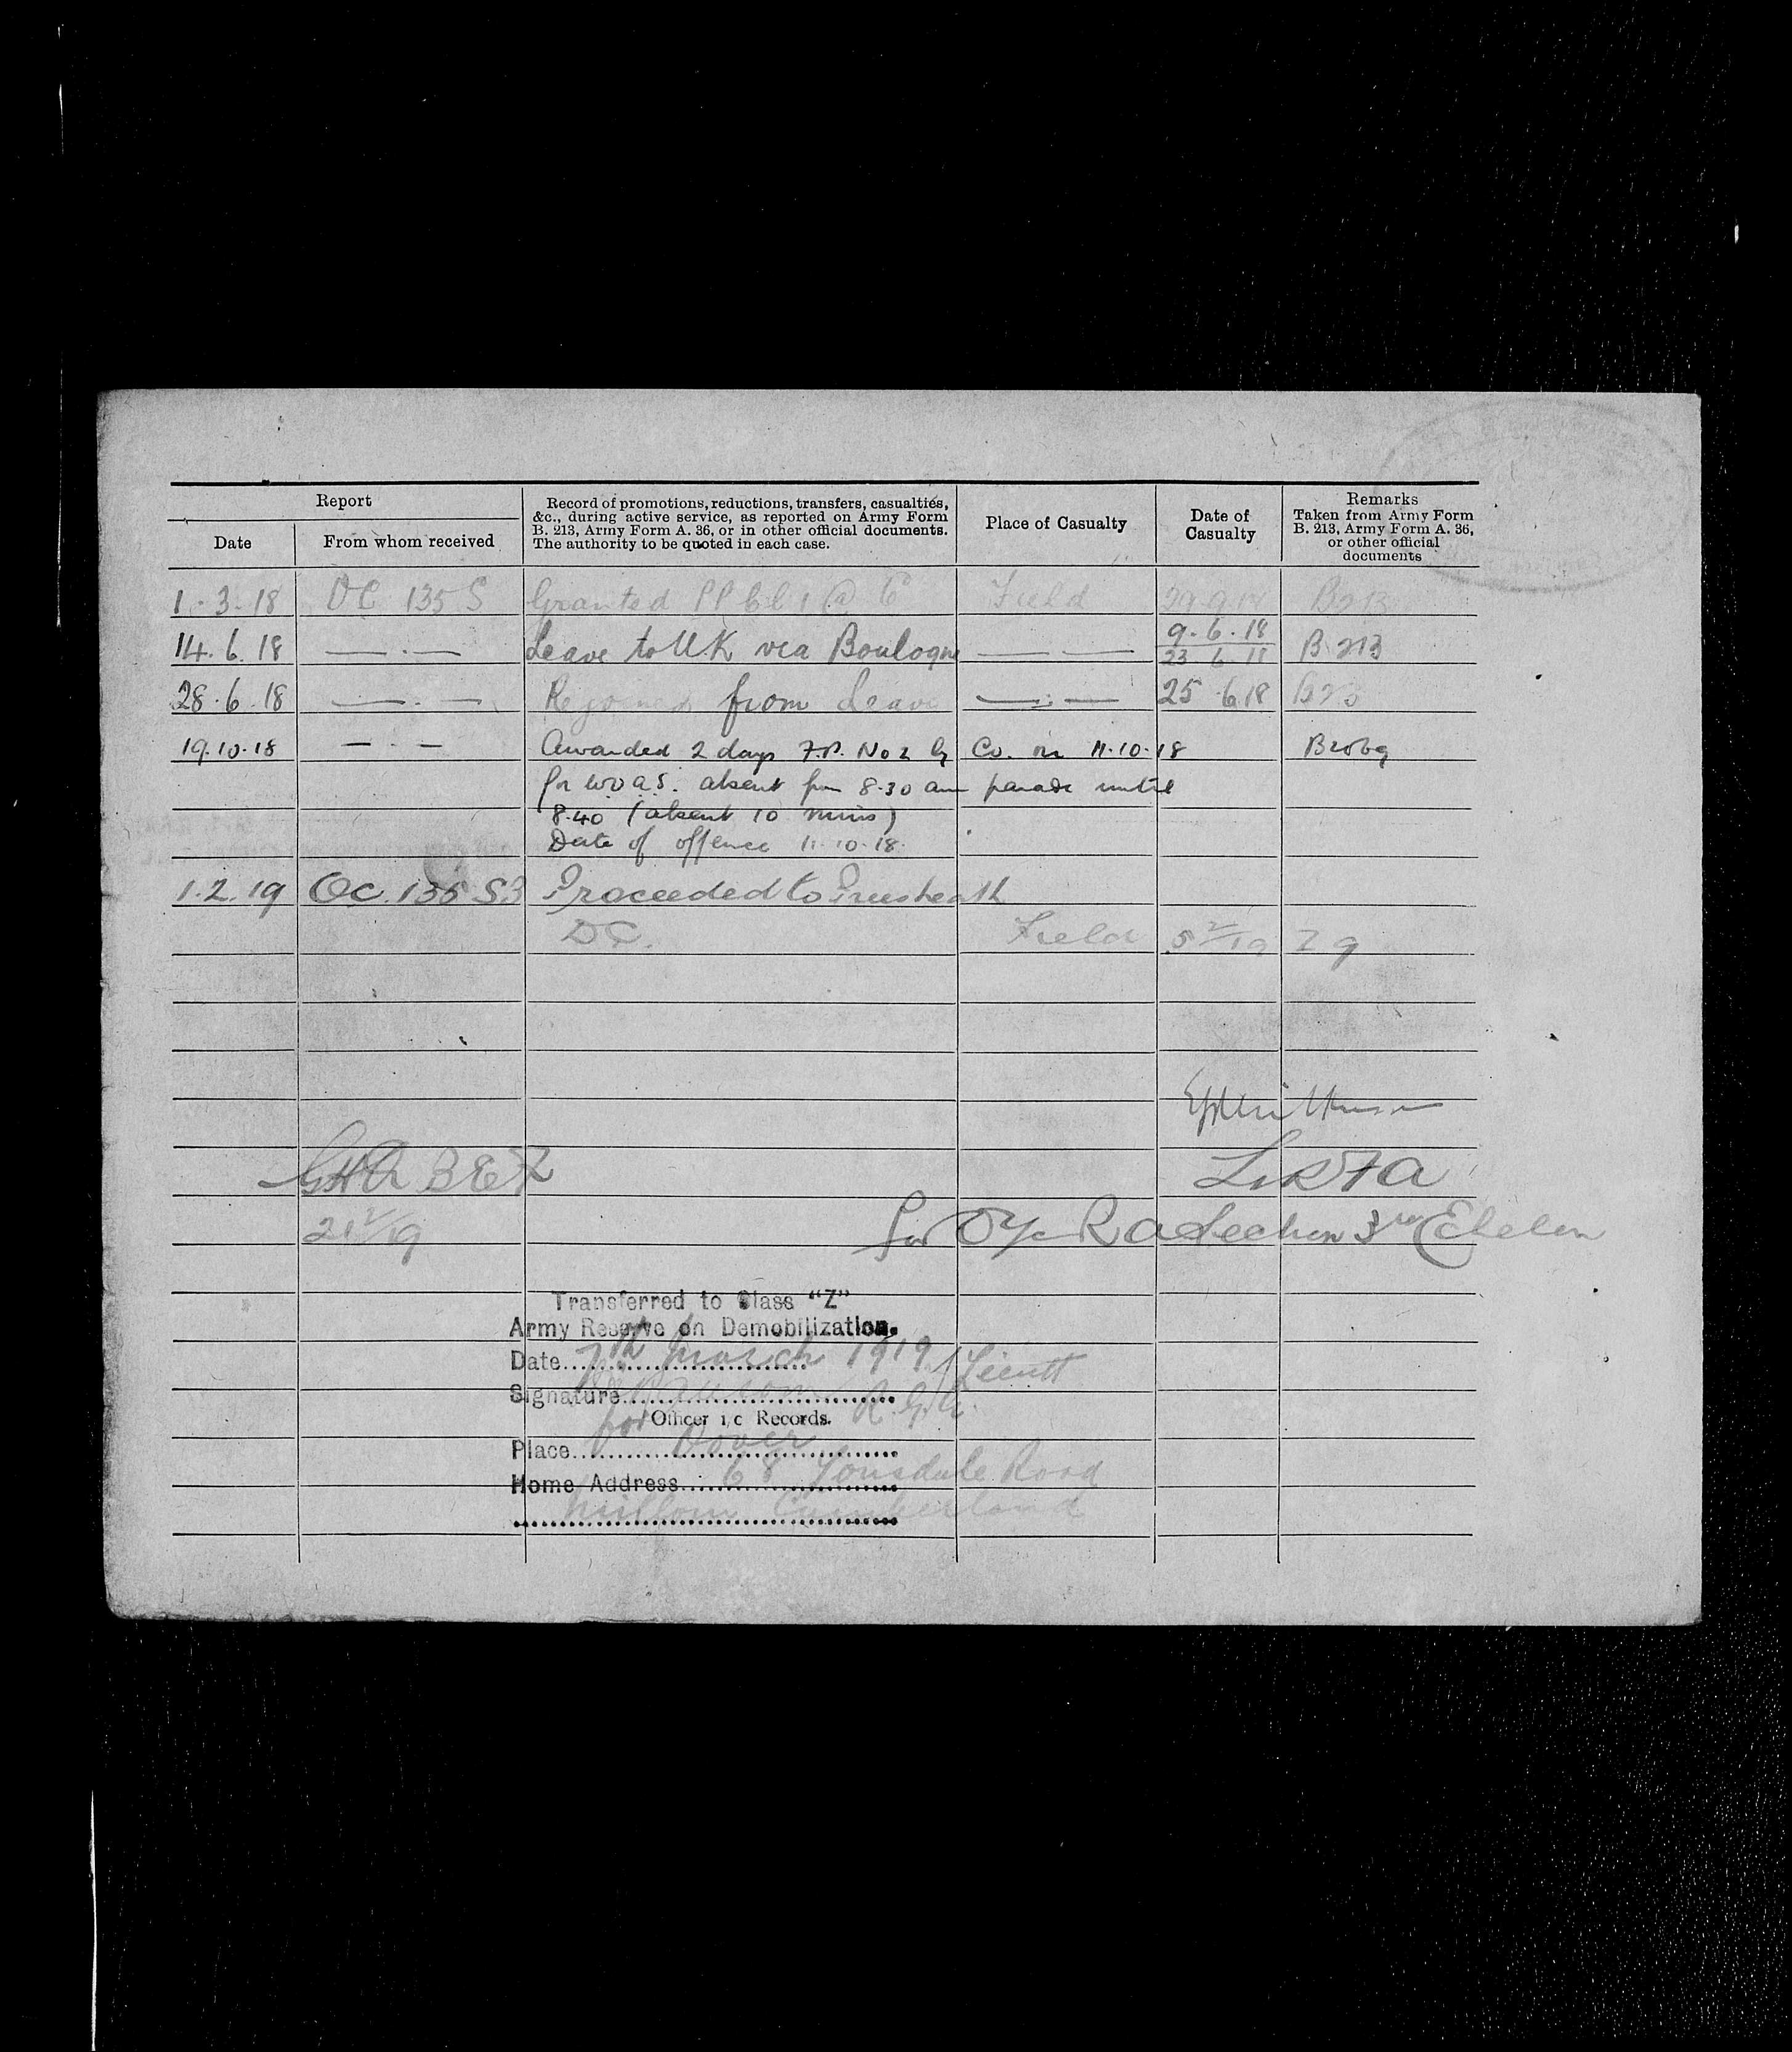 Report
Record of promotions, reductions, transfers, casualties,
&c., during active service, as reported on Army Form
B. 213, Army Form A. 36, or in other official documents.
The authority to be quoted in each case.
Place of Casualty
Date of
Casualty
Remarks
Taken from Army Form
B. 213, Army Form A. 36,
or other official
documents
Date
From whom received
1.3.18 OC 135 S Granted PP Cl 1 @ 6 Field B213
14.6.18 — . — Leave to U.K via Boulogne — — 9.6.18 23.6.18 B.213
28.6.18 — . — Rejoined from Leave — . — 25.6.18 B213
19.10.18 — . — Awarded 2 days F.P. No 2 by Co. on 11.10.18
for W.O.A.S. absent from 8.30 am parade until
8.40 (absent 10 mins)
Date of offence 11.10.18.
1.2.19 OC. 135 SB Proceeded to Preesheath
DC. Field 5 2/19 Z 9
GHQ BEF
21 2/19
Lt RFA
for O i/c RA Section 3rd Echelon
Transferred to Class "Z"
Army Reserve on Demobilization.
Date 7th March 1919
Signature Lieut
R.G.A.
for Officer i/c Records.
Place Dover
Home Address 68 Lonsdale Road
Millom Cumberland